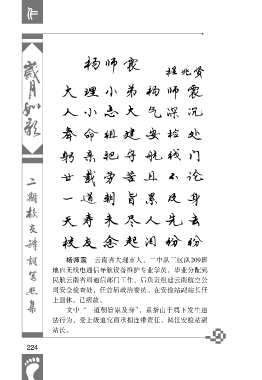 作
岁月如歌
二期校友诗词写照集
杨师震
程兆贤
大理小弟杨师震
人小志大气深沉
奉命组建安检处
躬亲把守航线门
廿载劳苦且不论
一道朝旨累及身
天寿未尽人先去
校友念起泪纷纷
杨师震 云南省大理市人、二中队三区队209班
地面无线电通信导航设备维护专业学员，毕业分配到
民航云南省局通信部门工作，后负责组建云南航空公
司安全检查处，任首届政治委员。在安检站副站长任
上退休。已病故。
文中“一道朝旨累及身”，系指由于属下发生违
法行为，受上级追究而承担连带责任，调任安检站副
站长。
224